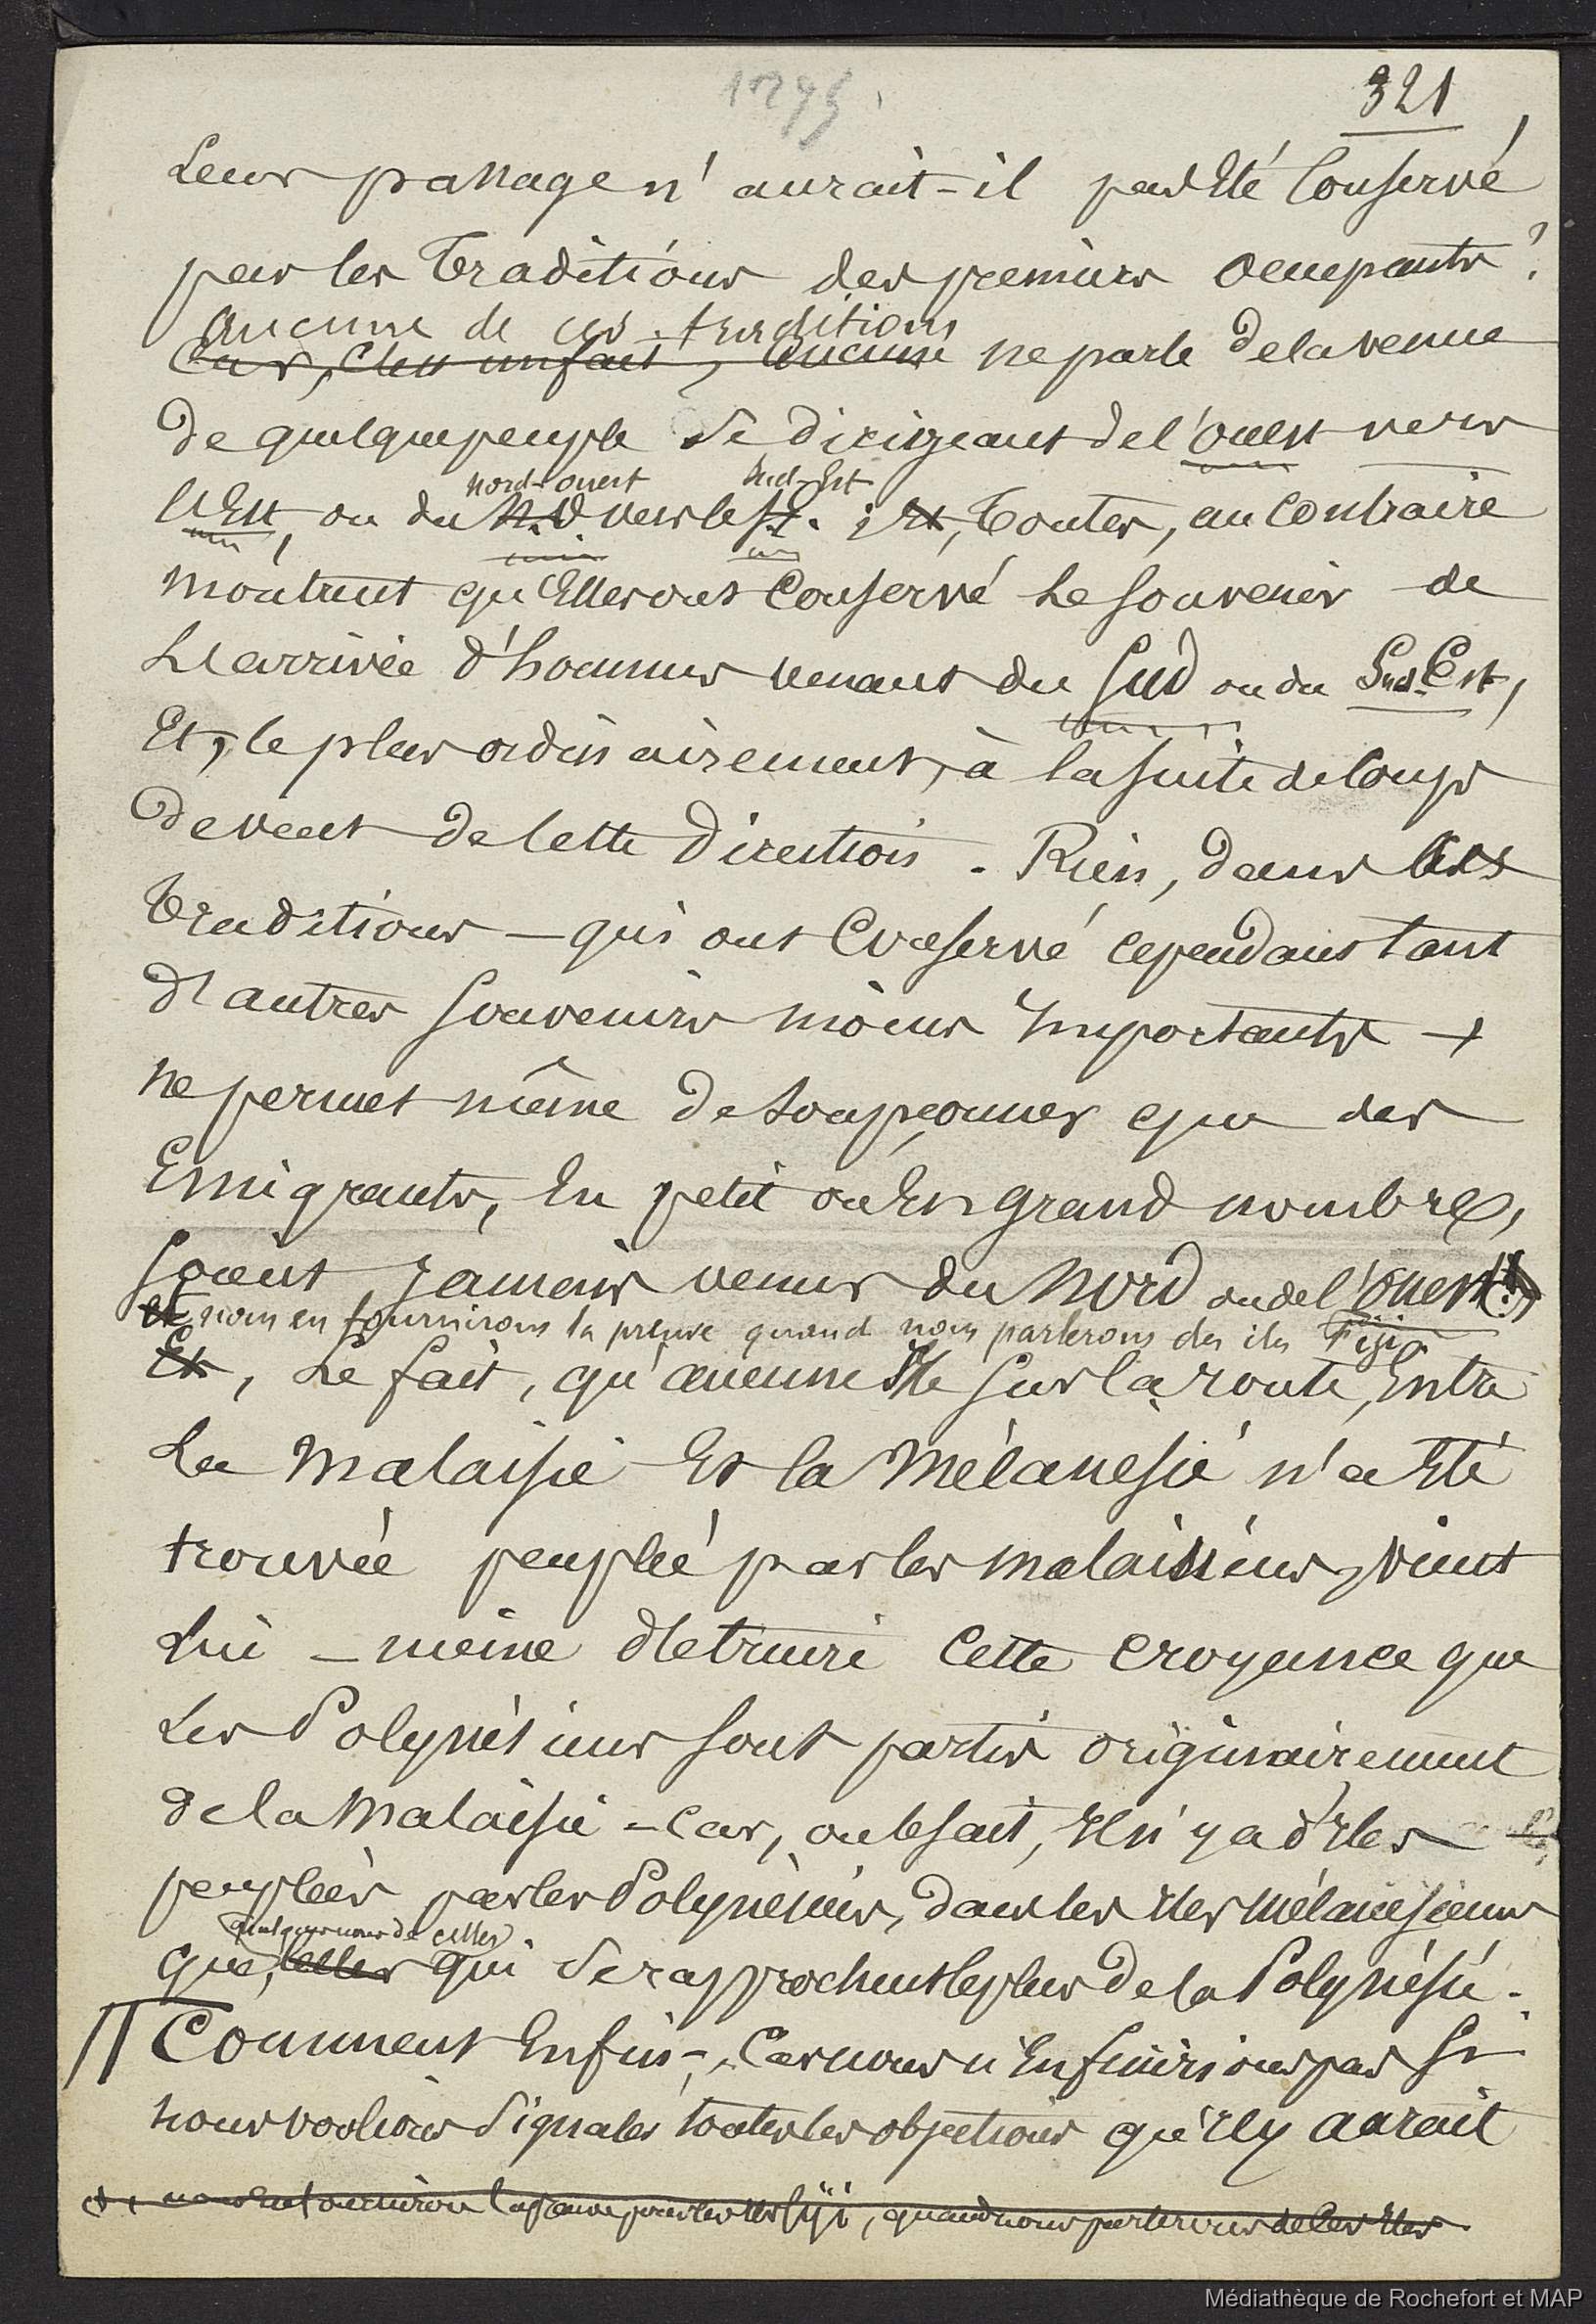 321
leur passage n'aurait-il pas été conservé
par les traditions des premiers occupants?
Aucune de ces traditions
Car, c'est un fait, aucune ne parle de la venue
de quelque peuple se dirigeant de l'ouest vers
nord-ouest sud-Est
l'Est, ou du N.O vers le S.E. ; Et, toutes, au contraire
montrent qu'Elles ont conservé le souvenir de
l'arrivée d'hommes venant du Sud ou du Sud-Est,
Et, le plus ordinairement, à la suite de coups
de vent de cette direction. Rien, dans ces
traditions — qui ont conservé cependant tant
d'autres souvenirs moins importants +
ne permet même de soupçonner que des
Emigrants, En petit ou En grand nombre,
soient jamais venus du Nord ou de l'ouest!
et nous en fournirons la preuve quand nous parlerons des iles Fiji
Et, le fait, qu'aucune Ile sur la route, Entre
la Malaisie Et la Mélanésie n'a Eté
trouvée peuplée par les malaisiens, vient
lui-même détruire cette croyance que
les Polynésiens sont partis originairement
de la Malaisie - car, on le sait, Il n'y a d'Iles
peuplées par les Polynésiens, dans les Iles Mélanésiennes
quelques unes de celles
que, celles qui se rapprochent le plus de la Polynésie.
// Comment Enfin -, car nous n'En finirions pas si
nous voulions signaler toutes les objections qu'Il y aurait
et, nous En fournirons la preuve pour les Iles Fiji, quand nous parlerons de ces Iles
Médiathèque de Rochefort et MAP